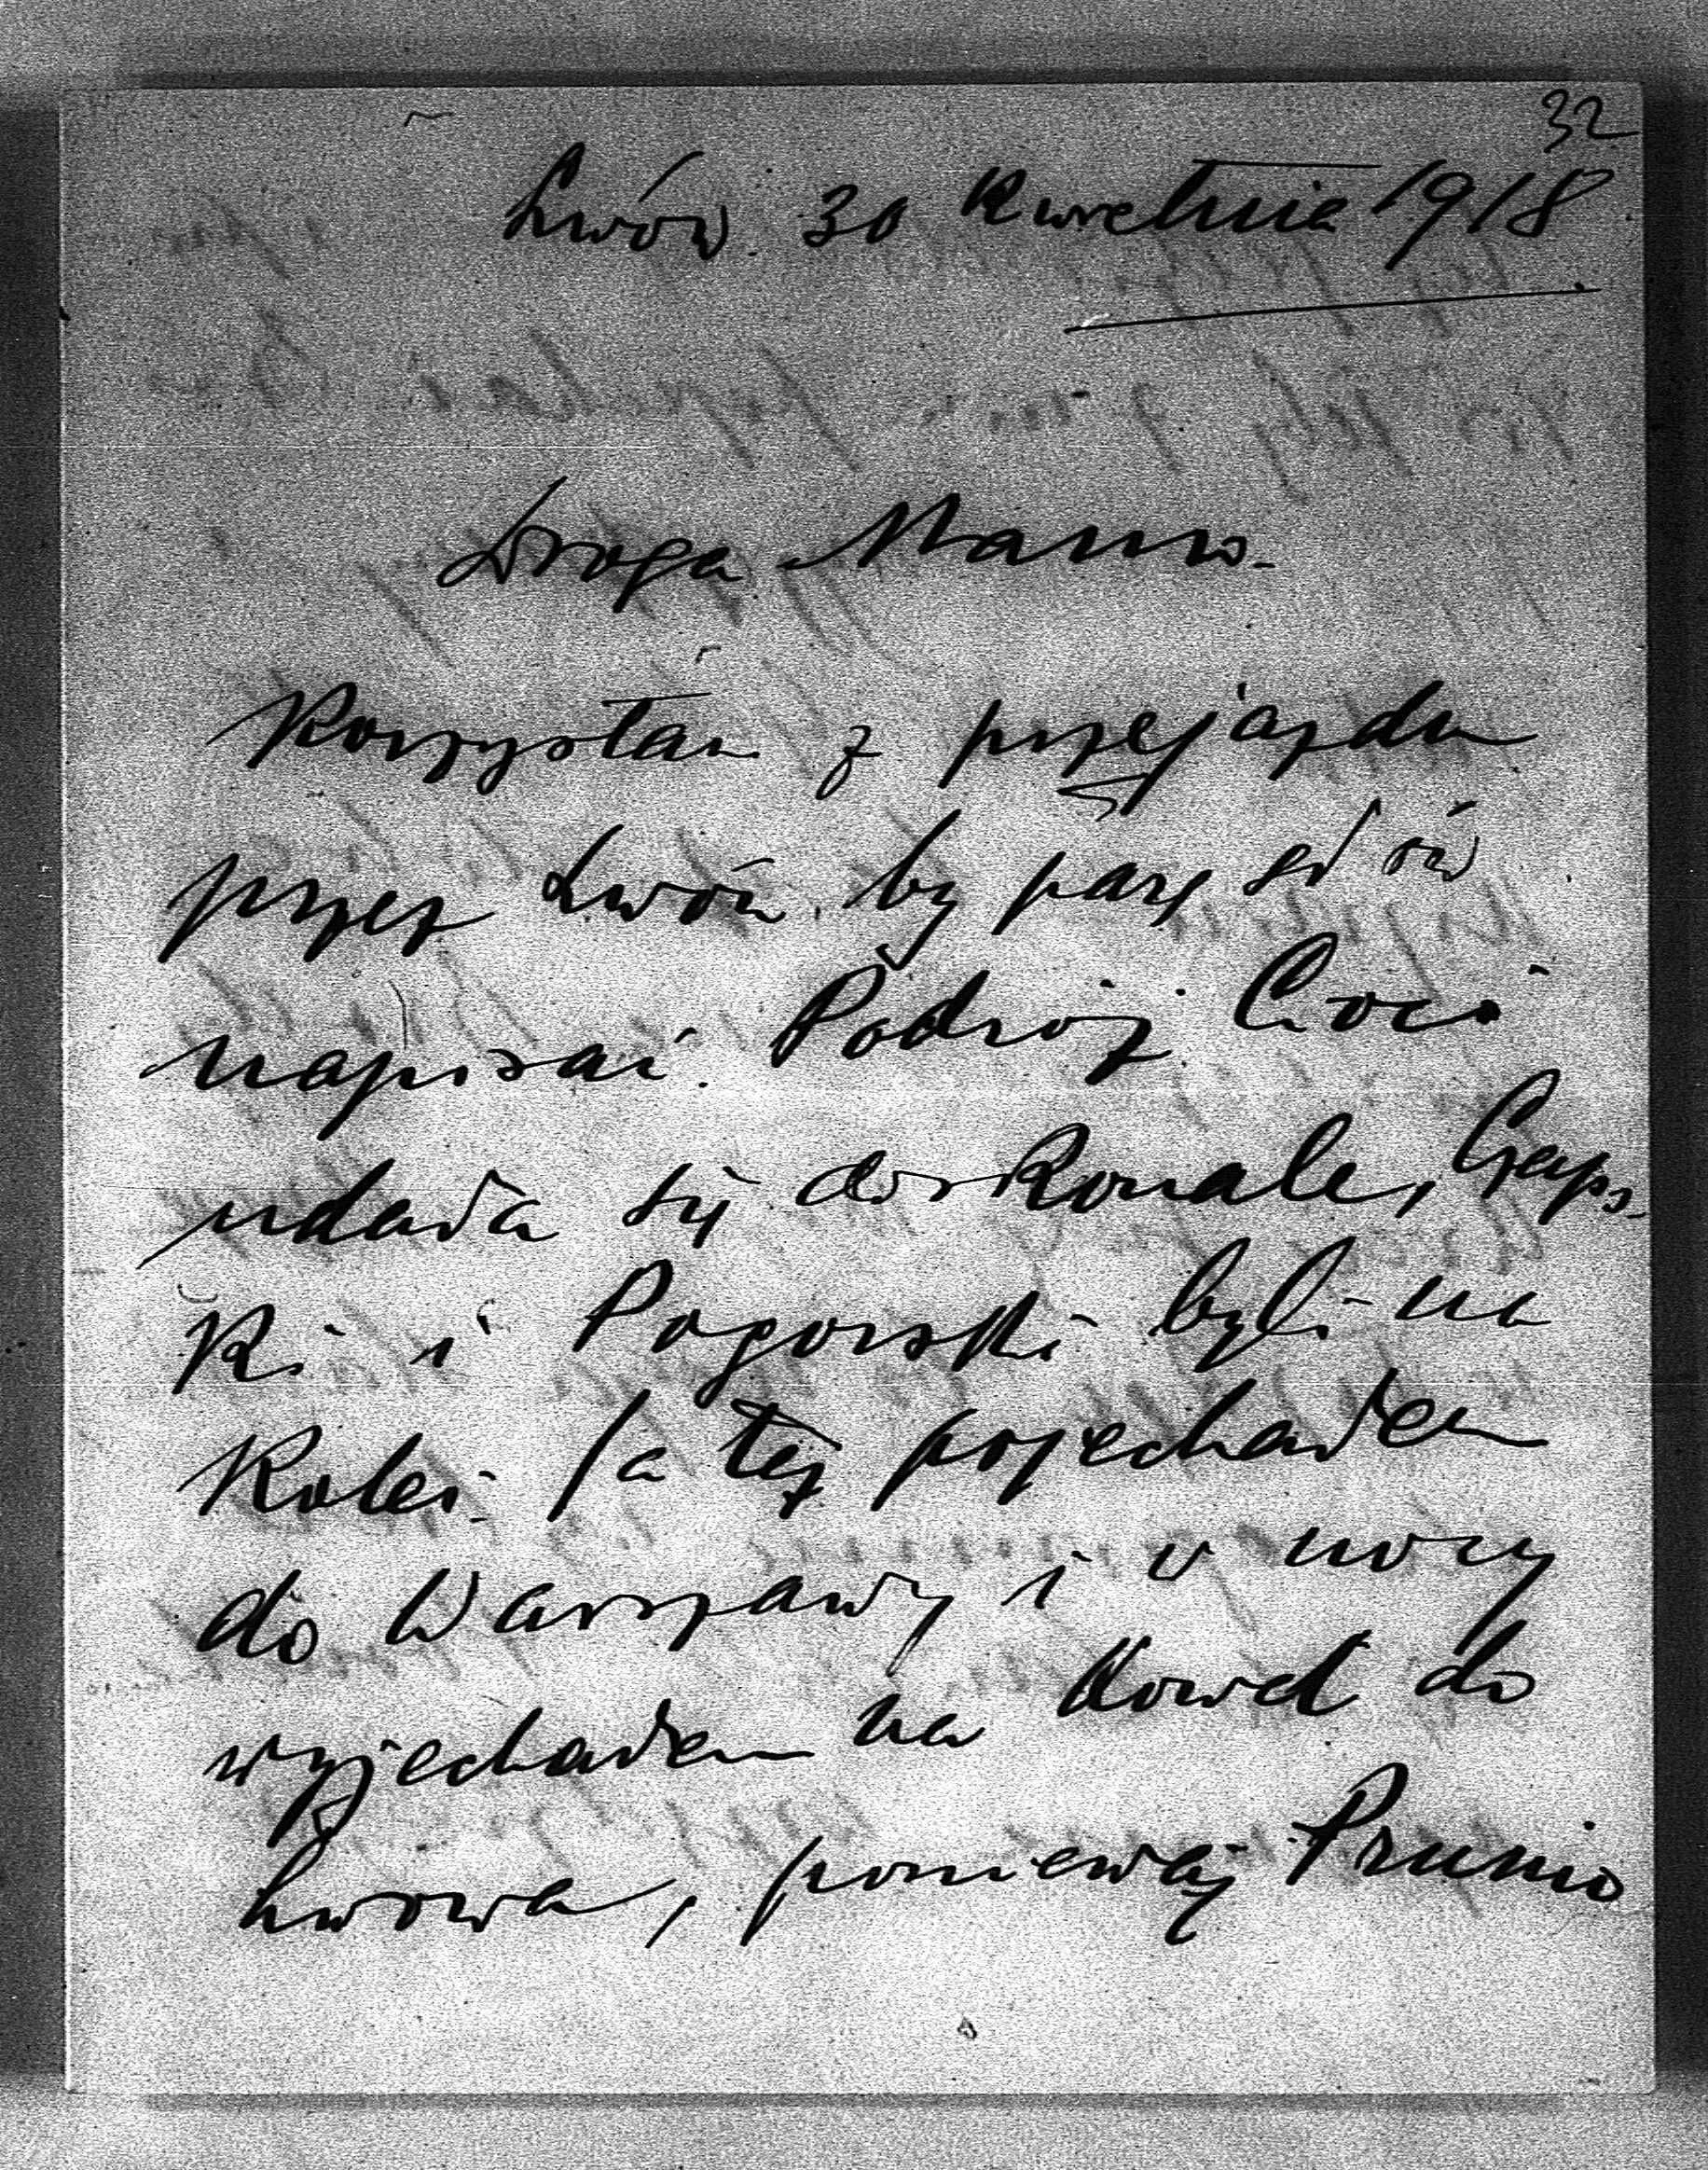 32
Lwów 30 kwietnia 1918
Droga Mamo.
Korzystam z przejazdu
przez Lwów by parę słów
napisać. Podróż Cioci
udała się doskonale, Czaps-
ki i Pogorski byli na
kolei. Ja też pojechałem
do Warszawy i w nocy
wyjechałem na Kowel do
Lwowa, ponieważ Prunio